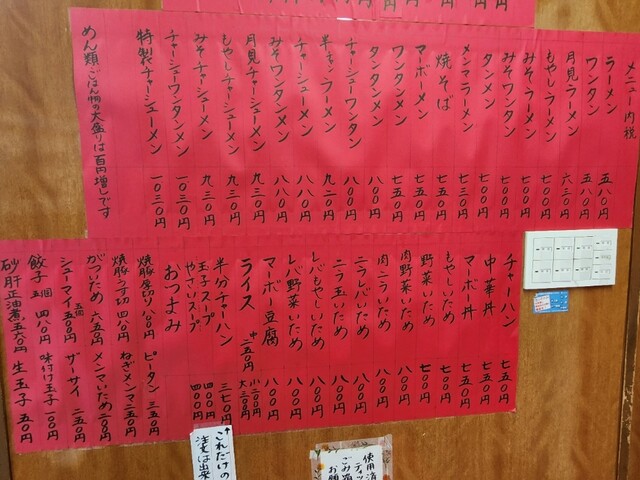 メニュー内税
ラーメン 五八〇円
ワンタン 五八〇円
月見ラーメン 六三〇円
もやしラーメン 七〇〇円
みそラーメン 七〇〇円
みそワンタン 七〇〇円
タンメン 七〇〇円
メンマラーメン 七五〇円
焼そば 七五〇円
マーボーメン 七五〇円
ワンタンメン 七五〇円
タンタンメン 八〇〇円
チャーシューワンタン 八〇〇円
半チャンラーメン 九二〇円
チャーシューメン 八八〇円
みそワンタンメン 八八〇円
月見チャーシューメン 九三〇円
もやしチャーシューメン 九三〇円
みそチャーシューメン 九三〇円
チャーシューワンタンメン 一〇三〇円
特製チャーシューメン 一〇三〇円
めん類・ごはん物の大盛りは百円増しです
チャーハン 七五〇円
中華丼 七五〇円
マーボー丼 七五〇円
もやしいため 七〇〇円
野菜いため 七〇〇円
肉野菜いため 八〇〇円
肉ニラいため 八〇〇円
ニラレバいため 八〇〇円
ニラ玉いため 八〇〇円
レバもやしいため 八〇〇円
レバ野菜いため 八〇〇円
マーボー豆腐 八〇〇円
ライス 中二五〇円 小二〇〇円 大三〇〇円
半分チャーハン 三七〇円
玉子スープ 四〇〇円
やさいスープ 四〇〇円
おつまみ
焼豚厚切り 八〇〇円 ピータン 三五〇円
焼豚うす切 四八〇円 ねぎメンマ 二五〇円
がついため 六五〇円 メンマいため 二〇〇円
シューマイ 五個 五五〇円 ザーサイ 二五〇円
餃子 五個 四八〇円 味付け玉子 一〇〇円
砂肝正油煮 五六〇円 生玉子 五〇円
↑これだけの
注文は出来
使用済
ティッ
ごみ箱
お願